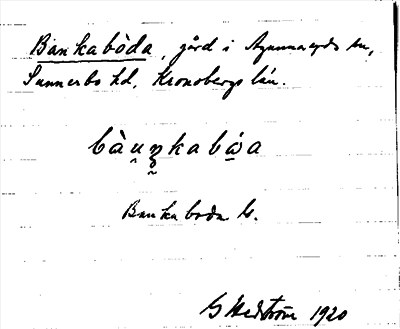 Bankabòda, gård i Agunnaryds sn,
Sunnerbo hd, Kronobergs län.
bàu̯ŋkabω̲a
Bankaboda G.
G Hedström 1920